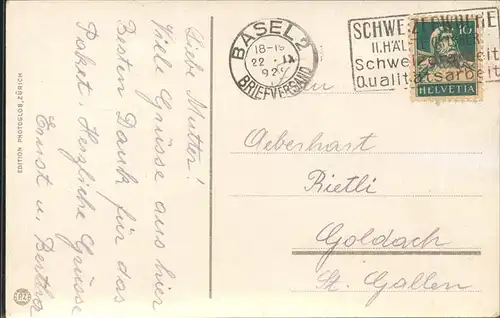 Liebe Mutter!
Viele Grüsse aus hier
Besten Dank für das
Paket. Herzliche Grüsse
Ernst u. Bertha
EDITION PHOTOGLOB ZÜRICH
BASEL 2
18-19
22. IX
192
BRIEFVERSAND
SCHWEIZERWOCHE
II. HÄL
Schweizerarbeit
Qualitätsarbeit
10
HELVETIA
Aeberhart
Rietli
Goldach
St. Gallen